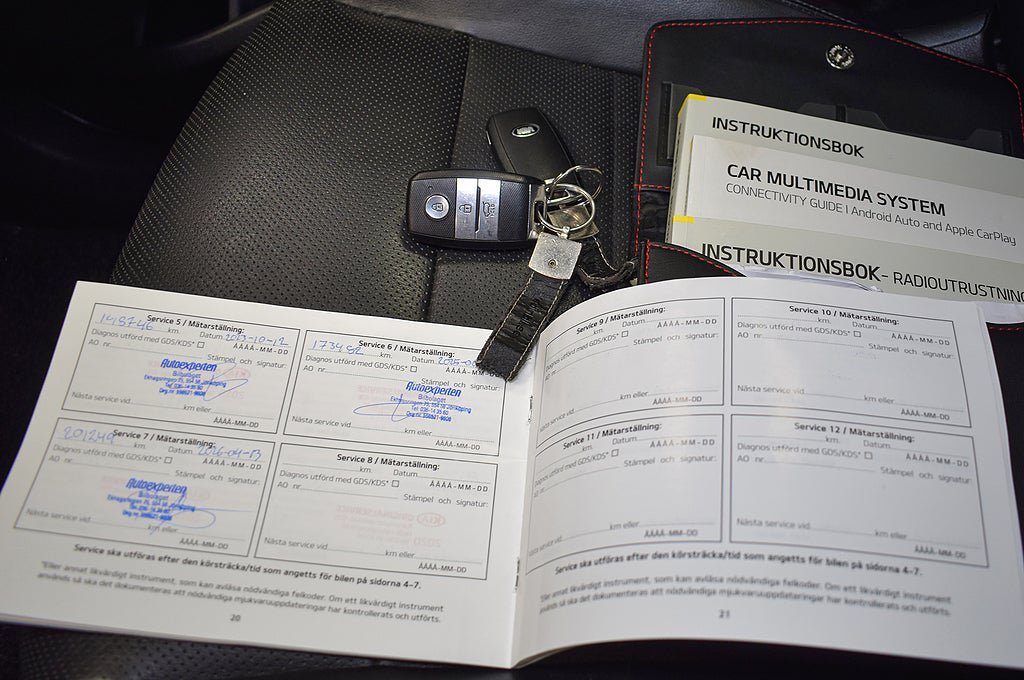 INSTRUKTIONSBOK
CAR MULTIMEDIA SYSTEM
CONNECTIVITY GUIDE I Android Auto and Apple CarPlay
INSTRUKTIONSBOK- RADIOUTRUSTNING
Service 5 / Mätarställning:
148746 km. Datum 2023-10-12
Diagnos utförd med GDS/KDS* ÅÅÅÅ-MM-DD
AO nr. Stämpel och signatur:
Autoexperten
Bilbolaget
Nästa service vid km eller
ÅÅÅÅ-MM-DD
Service 6 / Mätarställning:
173452 km. Datum
Diagnos utförd med GDS/KDS* ÅÅÅÅ-MM-DD
AO nr. Stämpel och signatur:
Autoexperten
Bilbolaget
Ekhagsringen 75, 554 56 Jönköping
Nästa service vid km eller
ÅÅÅÅ-MM-DD
Service 7 / Mätarställning:
201249 km. Datum 2026-04-13
Diagnos utförd med GDS/KDS* ÅÅÅÅ-MM-DD
AO nr. Stämpel och signatur:
Autoexperten
Bilbolaget
Nästa service vid km eller
ÅÅÅÅ-MM-DD
Service 8 / Mätarställning:
km. Datum
Diagnos utförd med GDS/KDS* ÅÅÅÅ-MM-DD
AO nr. Stämpel och signatur:
Nästa service vid km eller
ÅÅÅÅ-MM-DD
Service ska utföras efter den körsträcka/tid som angetts för bilen på sidorna 4-7.
*Eller annat likvärdigt instrument, som kan avläsa nödvändiga felkoder. Om ett likvärdigt instrument
används så ska det dokumenteras att nödvändiga mjukvaruuppdateringar har kontrollerats och utförts.
20
Service 9 / Mätarställning:
km. Datum
Diagnos utförd med GDS/KDS* ÅÅÅÅ-MM-DD
AO nr. Stämpel och signatur:
Nästa service vid km eller
ÅÅÅÅ-MM-DD
Service 10 / Mätarställning:
km. Datum
Diagnos utförd med GDS/KDS* ÅÅÅÅ-MM-DD
AO nr. Stämpel och signatur:
Nästa service vid km eller
ÅÅÅÅ-MM-DD
Service 11 / Mätarställning:
km. Datum
Diagnos utförd med GDS/KDS* ÅÅÅÅ-MM-DD
AO nr. Stämpel och signatur:
Nästa service vid km eller
ÅÅÅÅ-MM-DD
Service 12 / Mätarställning:
km. Datum
Diagnos utförd med GDS/KDS* ÅÅÅÅ-MM-DD
AO nr. Stämpel och signatur:
Nästa service vid km eller
ÅÅÅÅ-MM-DD
Service ska utföras efter den körsträcka/tid som angetts för bilen på sidorna 4-7.
*Eller annat likvärdigt instrument, som kan avläsa nödvändiga felkoder. Om ett likvärdigt instrument
används så ska det dokumenteras att nödvändiga mjukvaruuppdateringar har kontrollerats och utförts.
21